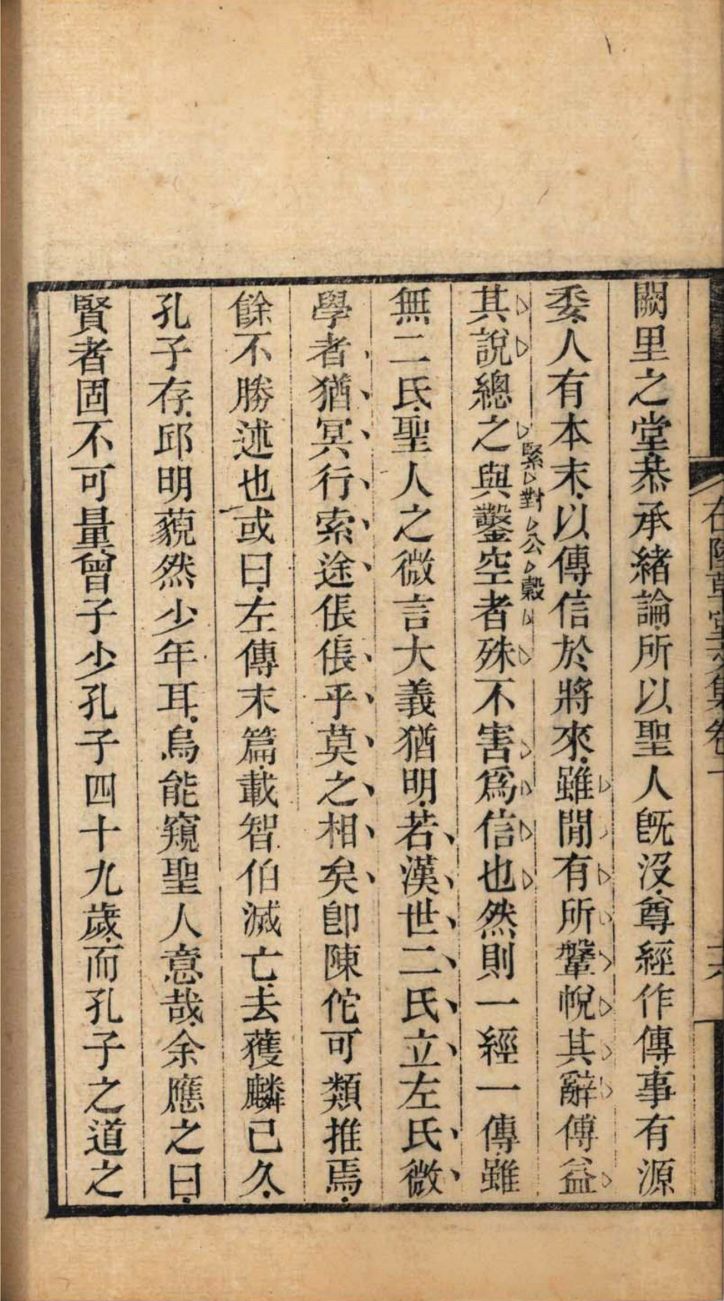 闕里之堂恭承緒論所以聖人旣沒尊經作傳事有源
委人有本末以傳信於將來雖閒有所鞶帨其辭傅益
緊對公穀
其說總之與鑿空者殊不害爲信也然則一經一傳雖
無二氏聖人之微言大義猶明若漢世二氏立左氏微
學者猶冥行索途倀倀乎莫之相矣卽陳佗可類推焉
餘不勝述也或曰左傳末篇載智伯滅亡去獲麟已久
孔子存邱明藐然少年耳烏能窺聖人意哉余應之曰
賢者固不可量曾子少孔子四十九歲而孔子之道之